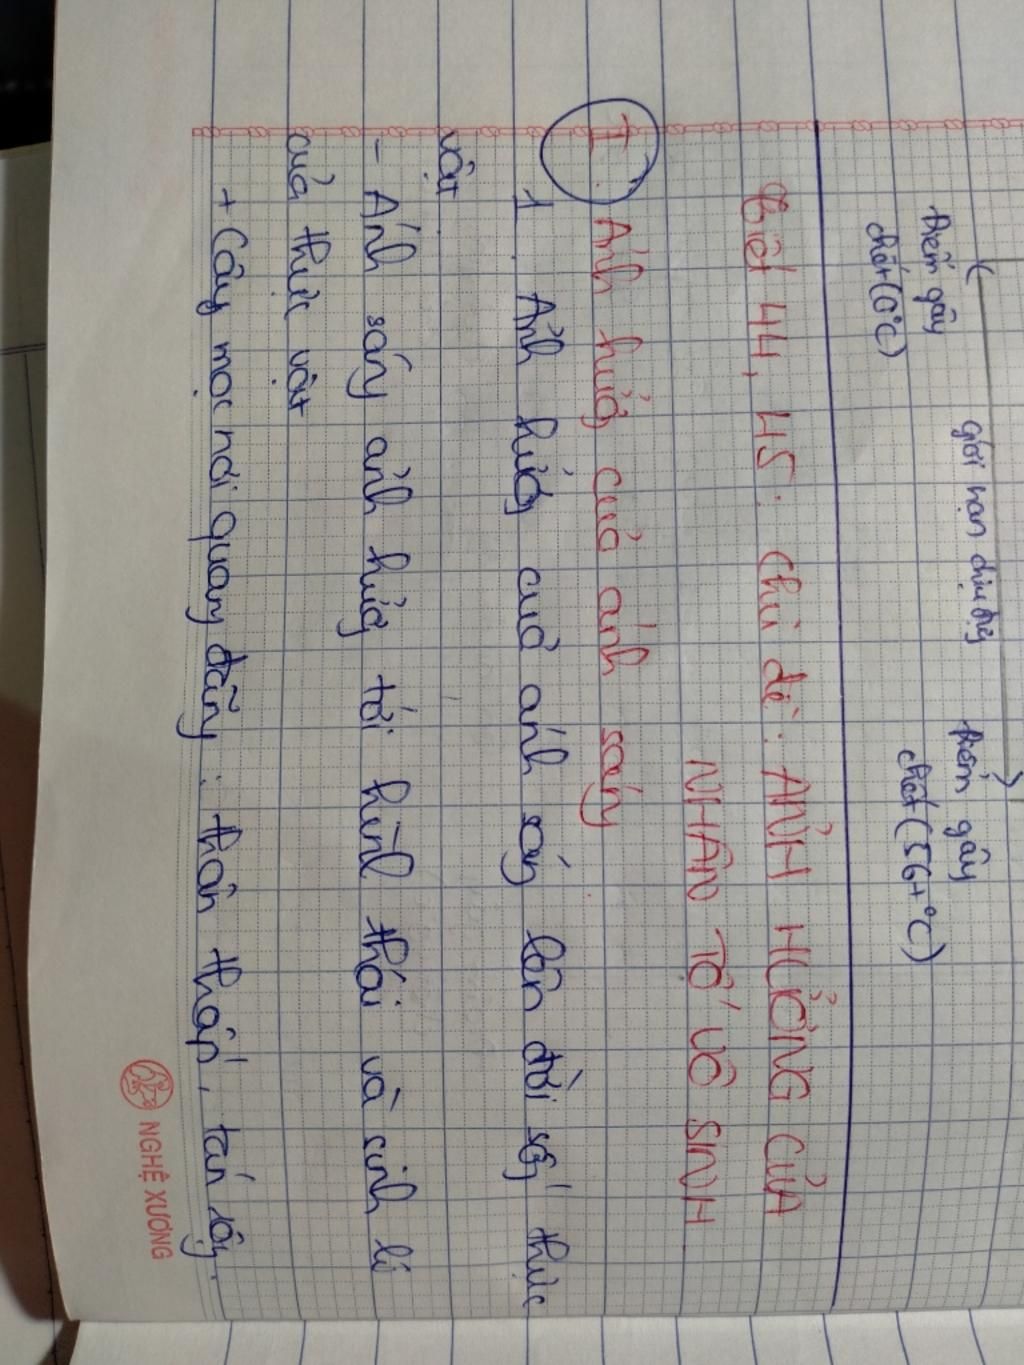 điểm gây
chết (0°C)
giới hạn chịu đựng
điểm gây
chết (56+°C)
Tiết 44, 45: Chủ đề: ẢNH HƯỞNG CỦA
NHÂN TỐ VÔ SINH
I. Ảnh hưởg của ánh sáng
1. Ảnh hưởg của ánh sáng lên đời sống thực
vật
- Ánh sáng ảnh hưởg tới hình thái và sinh lí
của thực vật
+ Cây mọc nơi quang đãng: thân thấp, tán rộng.
NGHỆ XƯƠNG